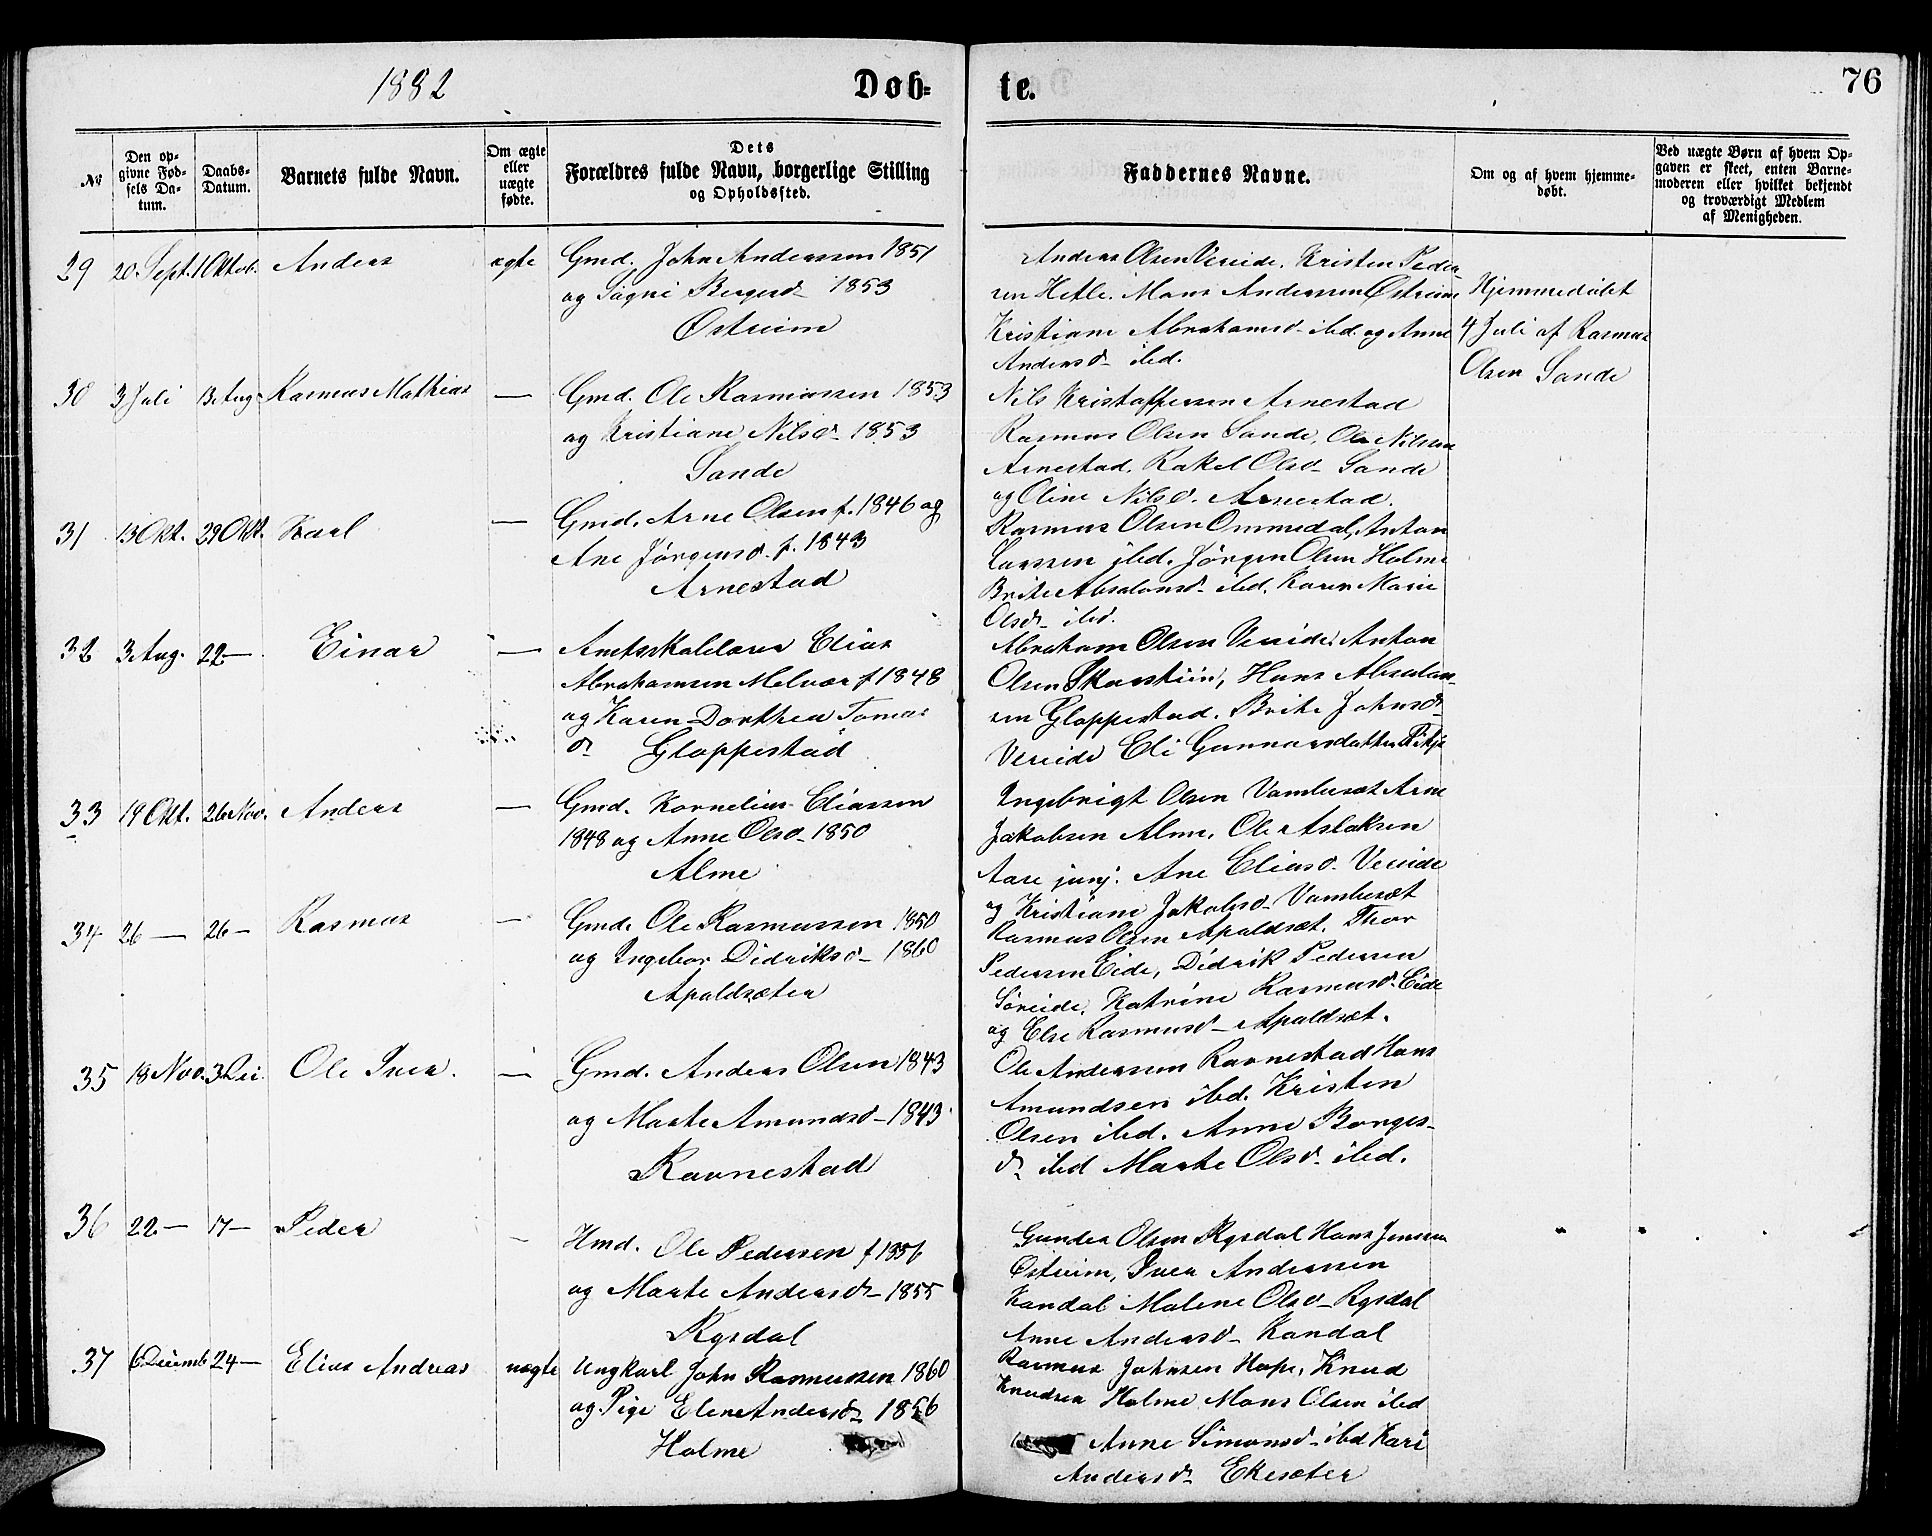 1882
Døb-
te.
76
No
Den op-
givne Fød-
sels Da-
tum.
Daabs-
Datum.
Barnets fulde Navn.
Om ægte
eller
uægte
fødte.
Dets
Forældres fulde Navn, borgerlige Stilling
og Opholdssted.
Faddernes Navne.
Om og af hvem hjemme-
døbt.
Ved uægte Børn af hvem Op-
gaven er skeet, enten Barne-
moderen eller hvilket bekjendt
og troværdigt Medlem
af Menigheden.
29 20 Sept. 1 Oktob. Anders ægte
Gmd. John Anderssen 1851
og Søgni Bergesd 1853
Østreim
Anders Olsen Vereide. Kristen Peder-
sen Hetle. Mons Anderssen Østreim
Kristiane Abrahamsd ibd. og Anne
Andersd ibd.
Hjemmedøbt
4 Juli af Rasmus
Olsen Sande
30 3 Juli 13 Aug Rasmus Mathias —
Gmd. Ole Rasmussen 1853
og Kristiane Nilsd 1853
Sande
Nils Kristoffersen Arnestad
Rasmus Olsen Sande, Ole Nilssen
Arnestad. Rakel Olsd Sande
og Oline Nilsd. Arnestad.
31 13 Okt. 29 Okt. Karl —
Gmd. Arne Olsen f. 1846 og
Ane Jørgensd. f. 1843
Arnestad
Rasmus Olsen Ommedal, Anton
Larssen ibd. Jørgen Olsen Holme
Brite Absalonsd ibd. Karen Marie
Olsd ibd.
32 3 Aug. 22 — Einar —
Amtsskolelærer Elias
Abrahamsen Melvær f 1848
og Karen Dorthea Tomas
d Gloppestad
Abraham Olsen Vereide, Anton
Olsen Skarstein, Hans Absalon-
sen Gloppestad. Brite Johnsd
Vereide Eli Gunnarsdatter
33 19 Okt. 26 Nov. Anders —
Gmd. Kornelius Eliassen
1848 og Anne Olsd 1850
Alme
Ingebrigt Olsen Vambesæt Arne
Jakobsen Alme. Ole Aslaksen
Aase junj. Ane Eliasd Vereide
og Kristiane Jakobsd Vambesæt
34 26 — 26 — Rasmus —
Gmd. Ole Rasmussen 1850
og Ingebor Didriksd 1860
Apaldsæter
Rasmus Olsen Apaldsæt. Thor
Pedersen Eide, Didrik Pedersen
Søreide, Katrine Rasmusd. Eide
og Else Rasmusd Apaldsæt.
35 18 Nov. 3 Dei. Ole Iver. —
Gmd. Anders Olsen 1843
og Marte Amundsd 1843
Ravnestad
Ole Anderssen Ravnestad Hans
Amundsen ibd. Kristen
Olsen ibd. Anne Borges-
d ibd Marte Olsd ibd.
36 22 — 17 — Peder —
Hmd. Ole Pedersen f 1856
og Marte Andersd 1855
Rysdal
Gunder Olsen Rysdal Hans Jenssen
Østreim, Iver Anderssen
Kandal Malene Olsd Rysdal
Anne Andersd Kandal
37 6 Decemb 24 — Elias Andreas uægte
Ungkarl John Rasmussen 1860
og Pige Elene Andersd 1856
Holme
Rasmus Johnsen Hope, Knud
Knudsen Holme Mons Olsen ibd
Anne Simonsd ibd Kari
Andersd Ekesæter